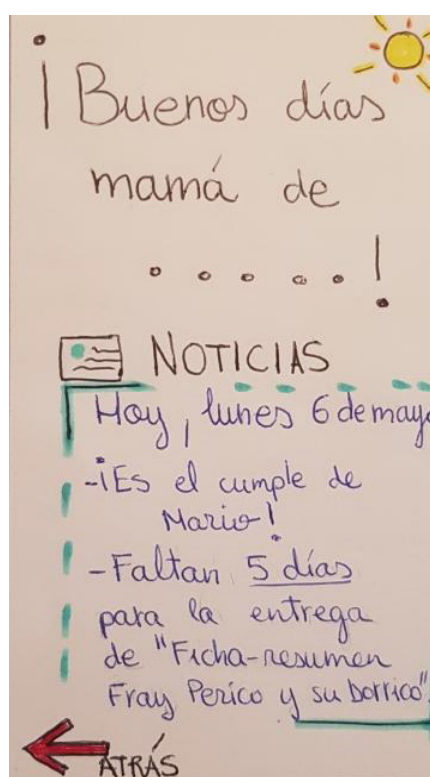 ¡Buenos días
mamá de
.....!
NOTICIAS
Hoy, lunes 6 de mayo
-¡Es el cumple de
Mario!
-Faltan 5 días
para la entrega
de "Ficha-resumen
Fray Perico y su borrico"
ATRÁS